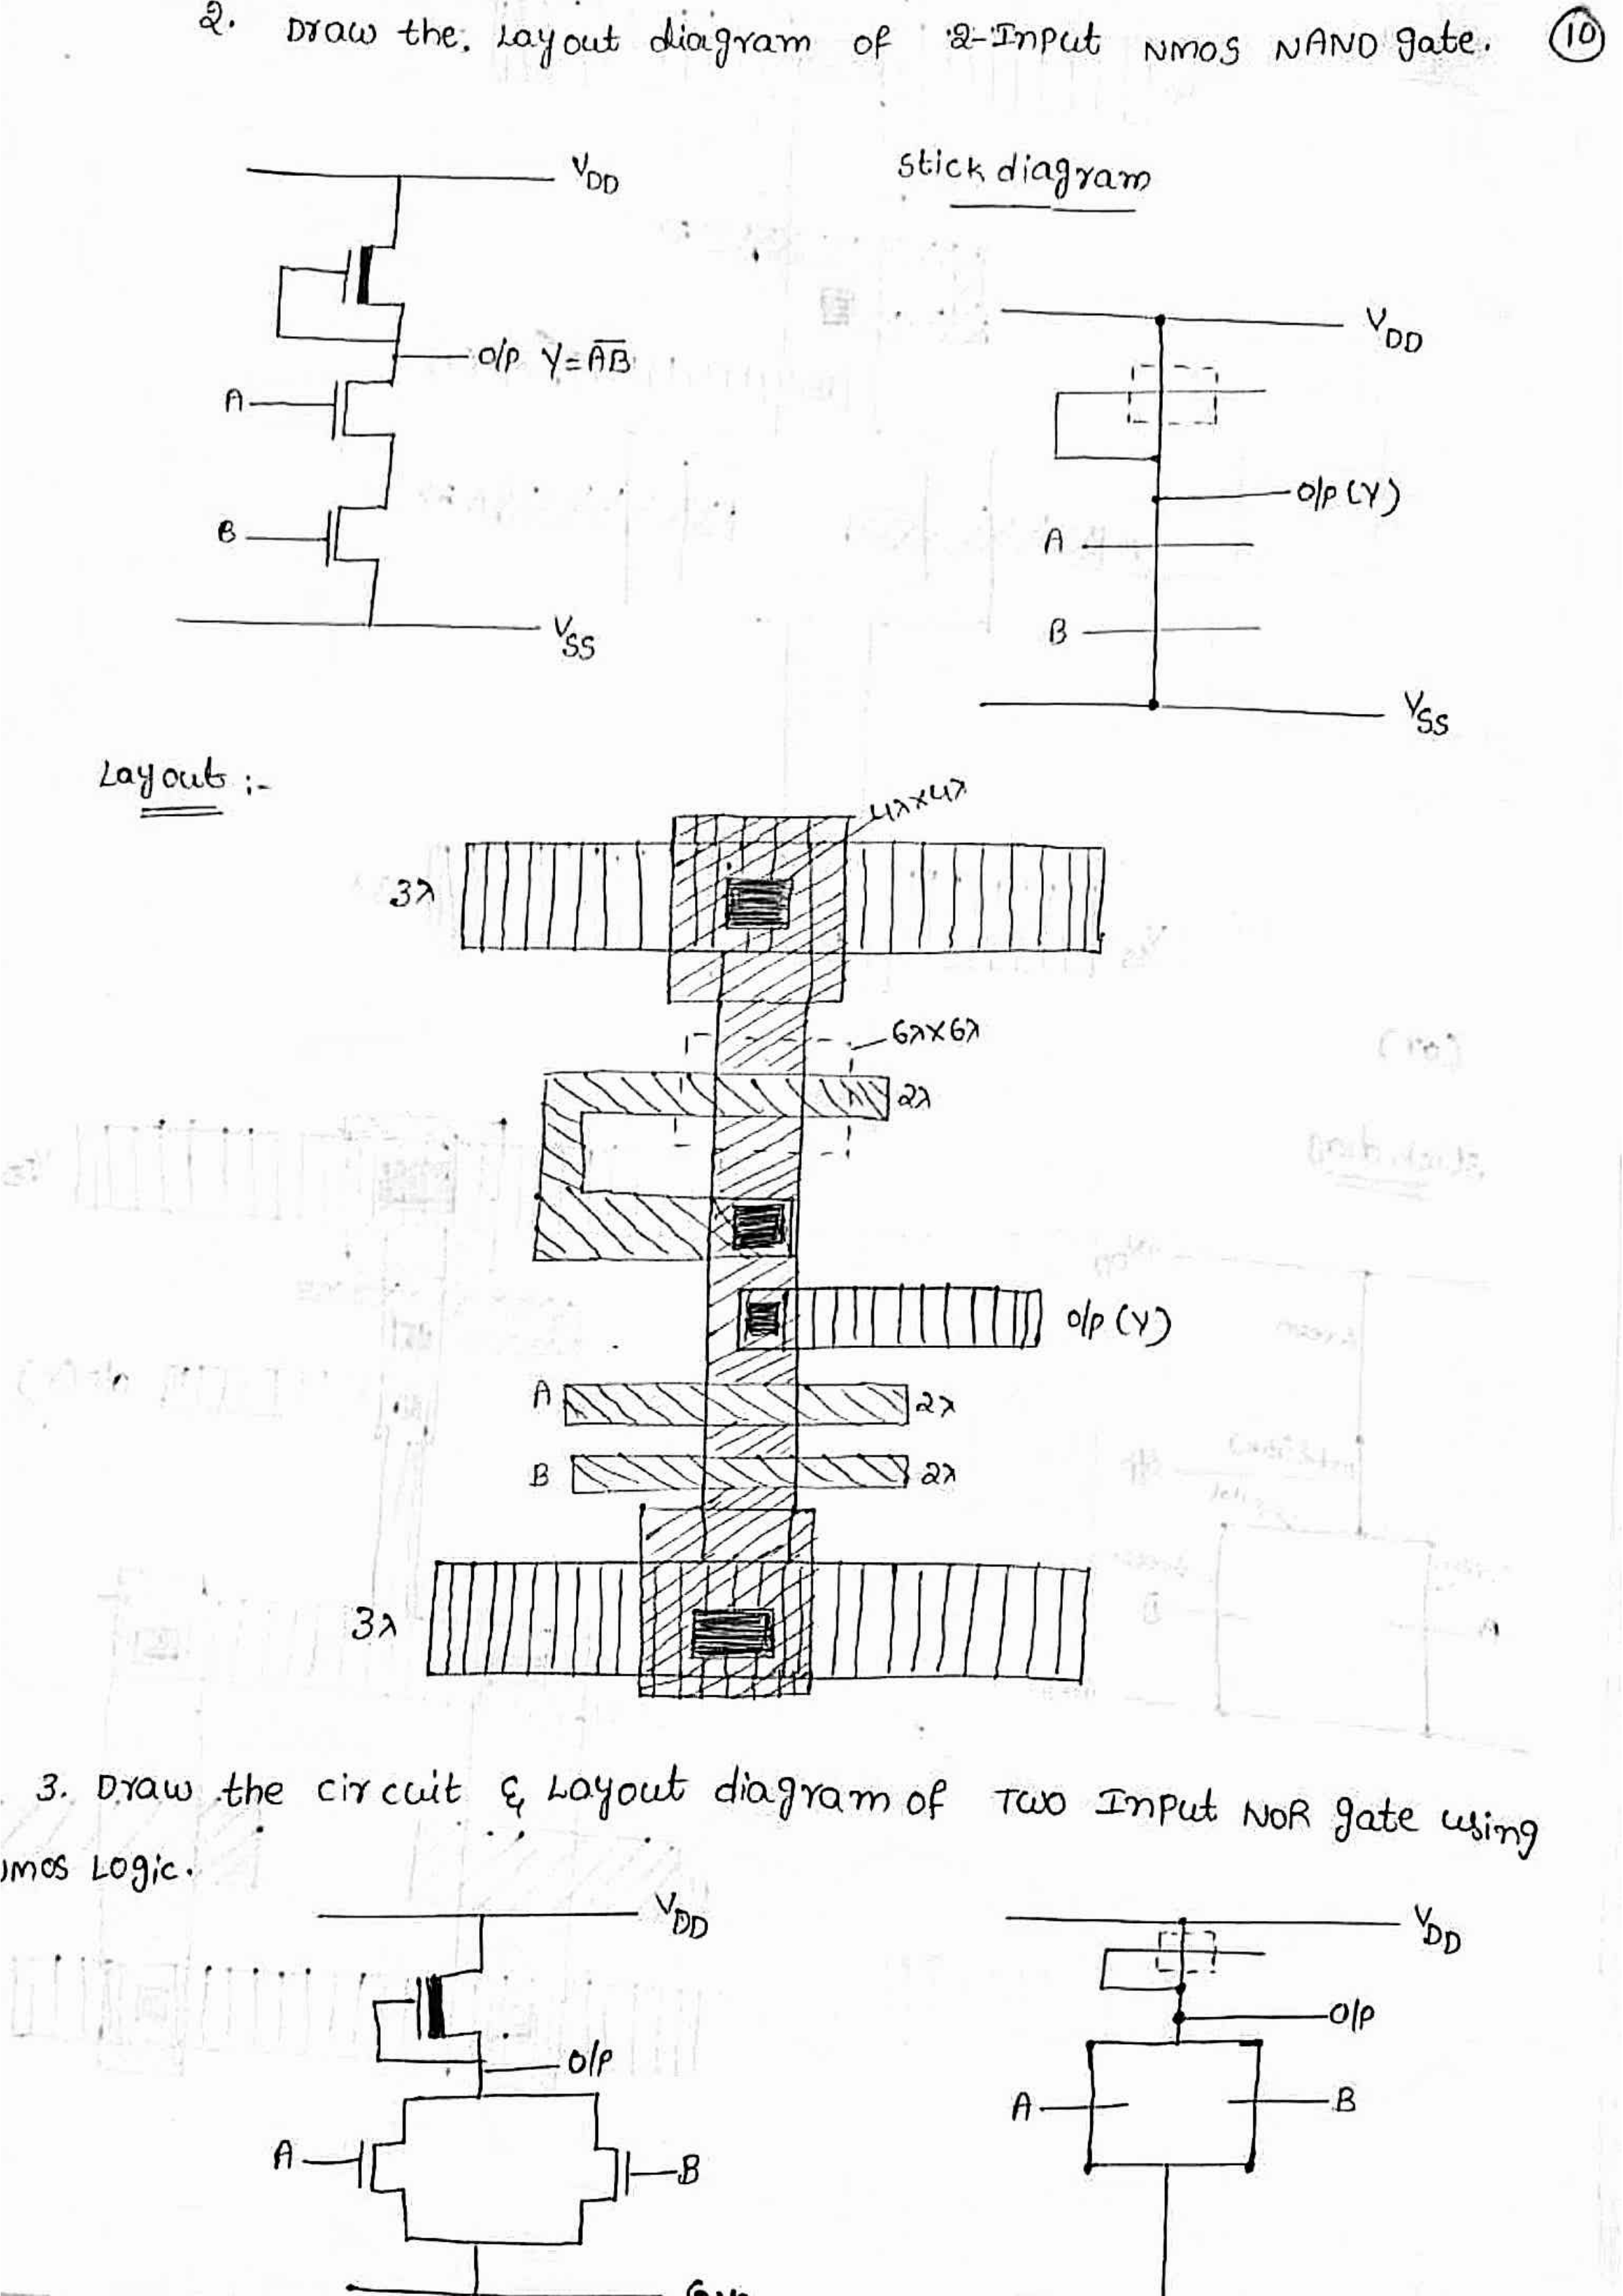 2. Draw the Layout diagram of 2-Input NMOS NAND gate. 10
VDD
O/P Y = A̅B̅
A
B
VSS
Stick diagram
VDD
O/P (Y)
A
B
VSS
Layout :-
4λ×4λ
3λ
6λ×6λ
2λ
O/P (Y)
A 2λ
B 2λ
3λ
3. Draw the circuit & Layout diagram of Two Input NOR gate using
MOS Logic.
VDD
O/P
A
B
VDD
O/P
A
B